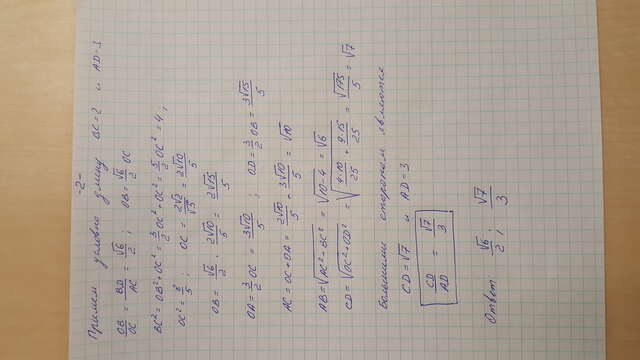 -2-
Примем условно длину BC=2 и AD=3
OB/OC = BD/AC = √6/2 ; OB = √6/2 OC
BC² = OB² + OC² = 3/2 OC² + OC² = 5/2 OC² = 4 ,
OC² = 8/5 ; OC = 2√2/√5 = 2√10/5
OB = √6/2 · 2√10/5 = 2√15/5
OA = 3/2 OC = 3√10/5 ; OD = 3/2 OB = 3√15/5
AC = OC + OA = 2√10/5 + 3√10/5 = √10
AB = √(AC² - BC²) = √(10-4) = √6
CD = √(OC² + OD²) = √(4·10/25 + 9·15/25) = √175/5 = √7
Большими сторонам являются
CD = √7 и AD = 3
CD/AD = √7/3
Ответ √6/2 ; √7/3